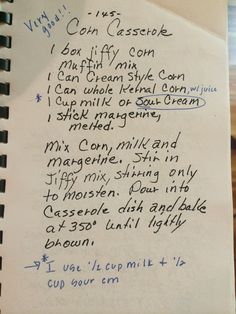 -145-
Very good!!!
Corn Casserole
1 box jiffy corn
muffin mix
1 Can Cream Style Corn
1 Can whole Kernal Corn, w/juice
* 1 Cup milk or Sour Cream
1 stick margerine,
melted.
Mix Corn, milk and
margerine. Stir in
Jiffy mix, stirring only
to moisten. Pour into
Casserole dish and bake
at 350° until lightly
brown.
→ * I use 1/2 cup milk + 1/2
cup sour crm